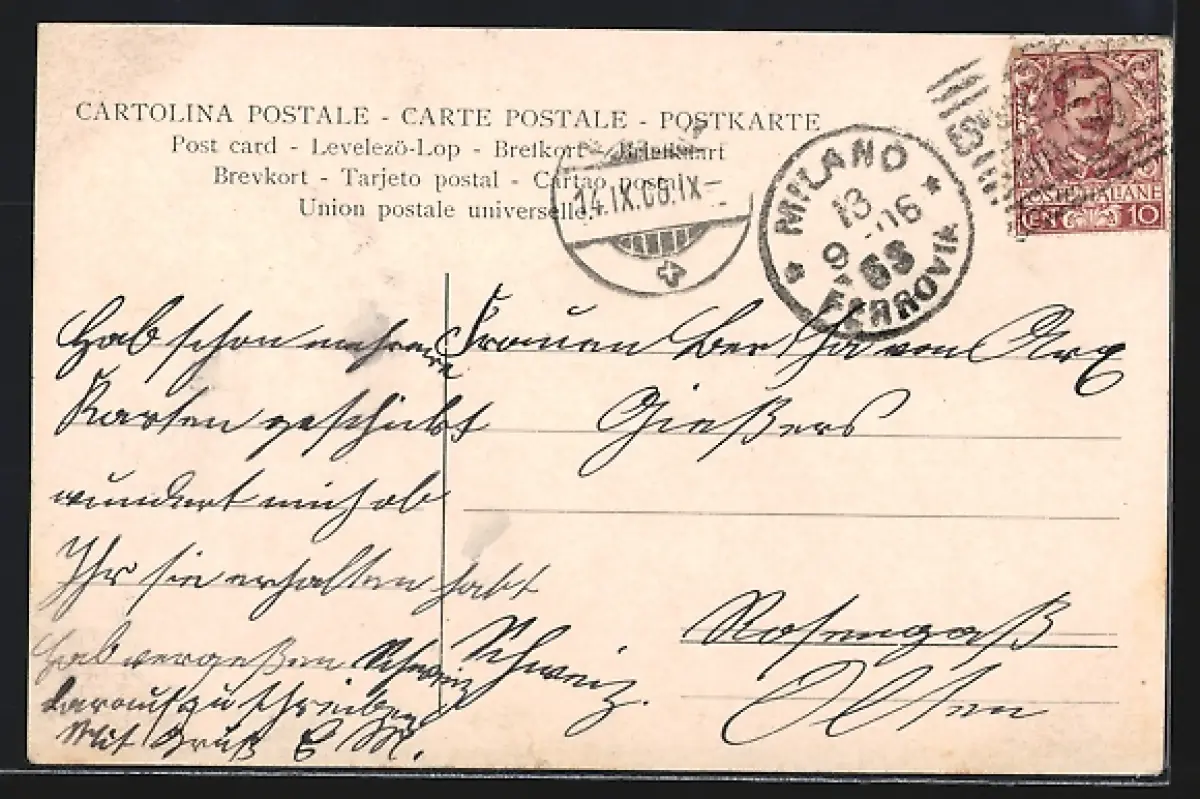 CARTOLINA POSTALE - CARTE POSTALE - POSTKARTE
Post card - Levelezö-Lop - Brefkort - Briefkaart
Brevkort - Tarjeto postal - Cartao postal
Union postale universelle.
14.IX.06.IX
MILANO
13
9 06
6S
FERROVIA
POSTE ITALIANE
CENT 10
Hab schon mehrere
Karten geschickt
wundert mich ob
Ihr sie erhalten habt
hab vergeßen Schweiz
darauf zu schreiben
Mit Gruß E M.
Frauen Bertha von Arx
Gießers
Rosengaß
Olten
Schweiz.